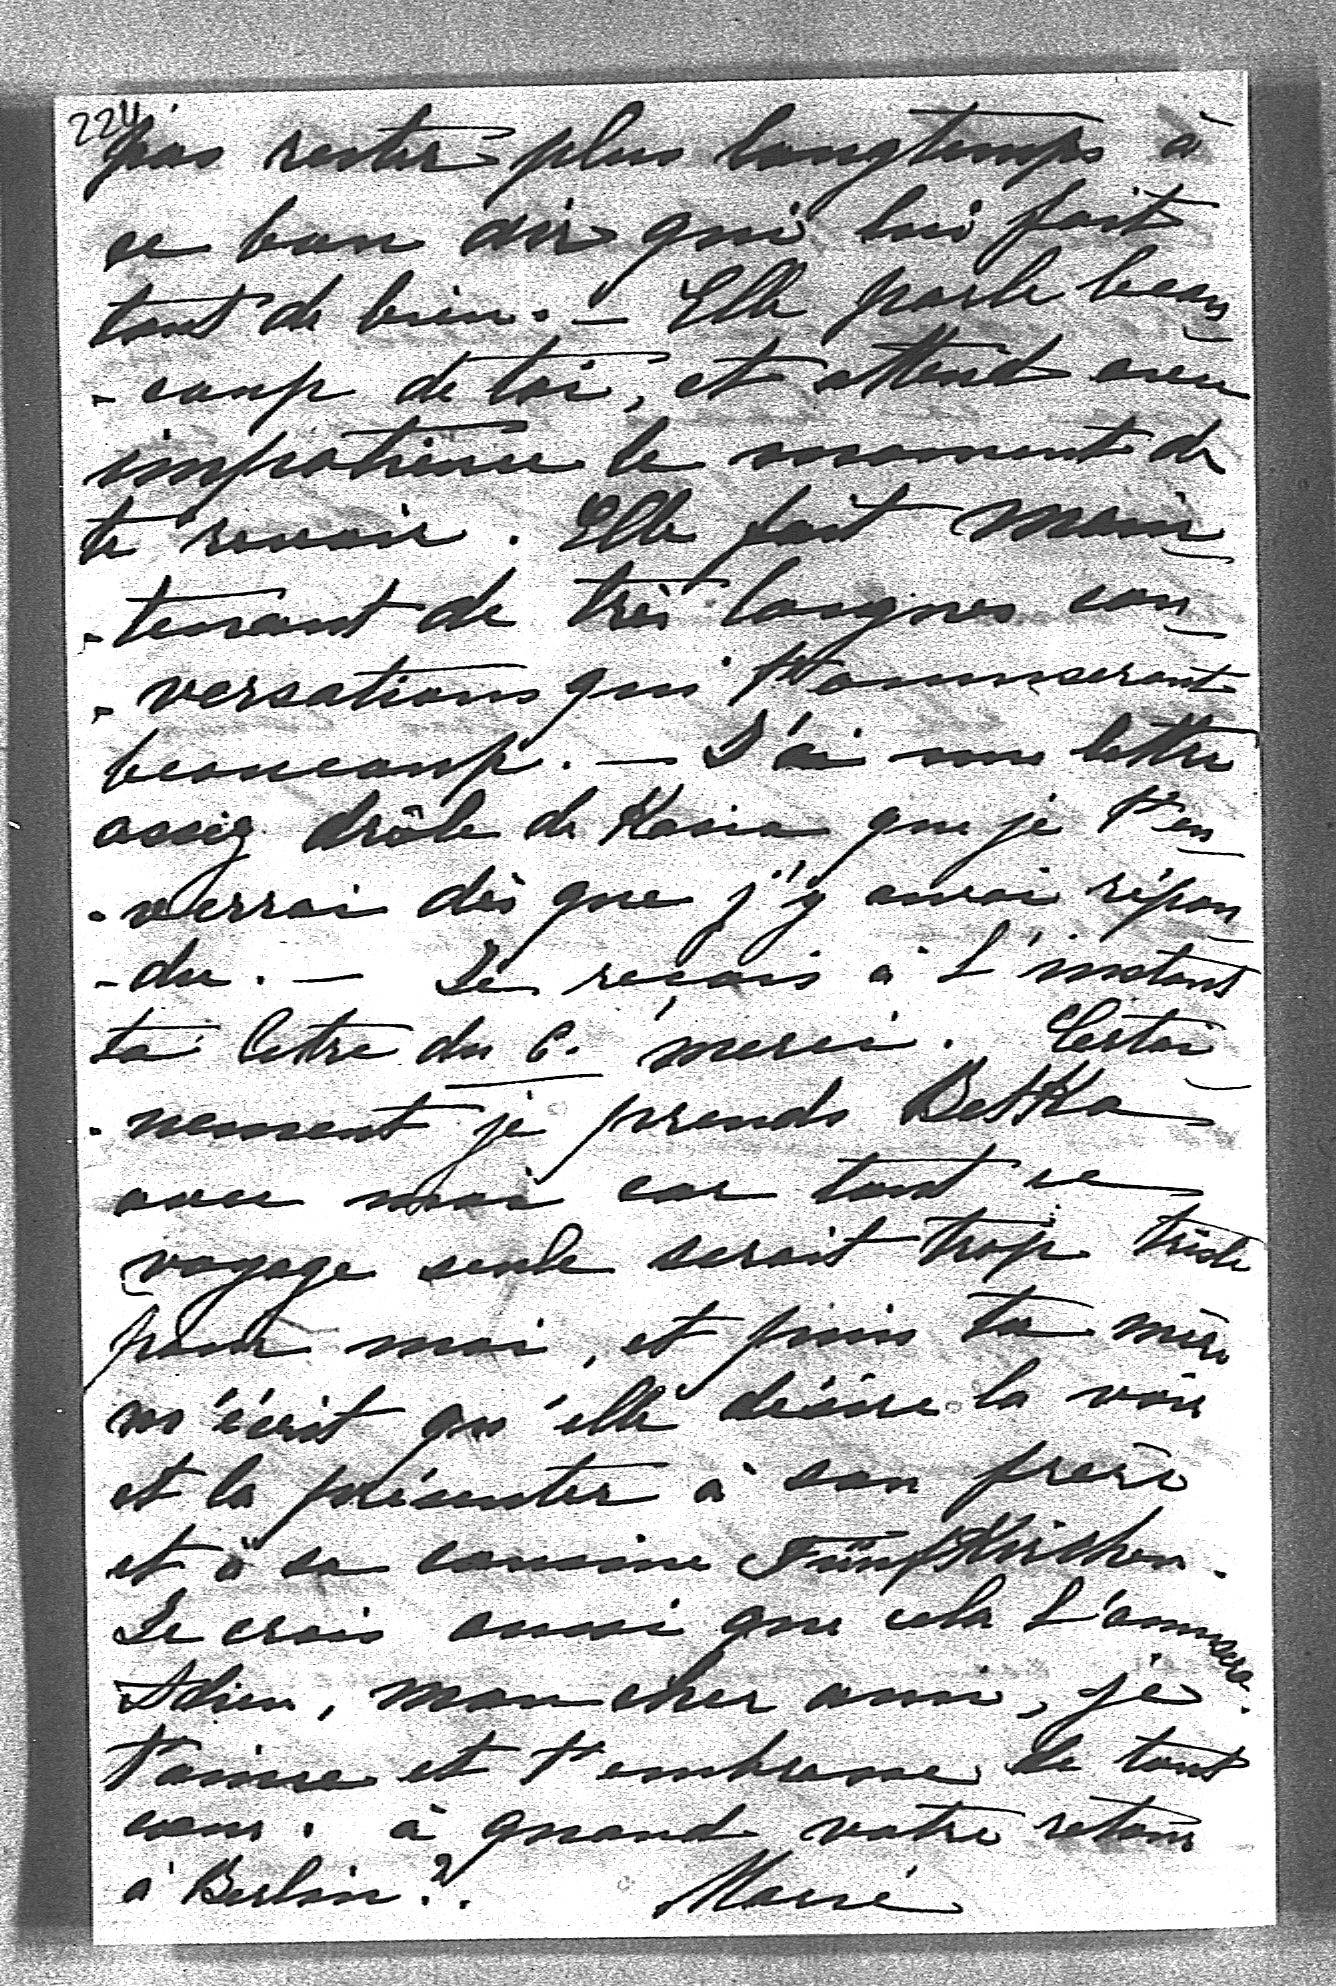 224
pas rester plus longtemps à
ce bon air qui lui fait
tant de bien. — Elle parle beau
- coup de toi, et attend avec
impatience le moment de
te revoir. Elle fait main
- tenant de très longues con
- versations qui t'amuseront
beaucoup. — J'ai une lettre
assez drôle de Kasia que je t'en
- verrai dès que j'y aurai répon
- du. — Je reçois à l'instant
ta lettre du 6. merci. Certai
- nement je prends Betka
avec moi car tout ce
voyage seule serait trop triste
pour moi, et puis ta mère
m'écrit qu'elle désire la voir
et la présenter à son frère
et à sa cousine Fünfkirchen.
Je crois aussi que cela l'amusera.
Adieu, mon cher ami, je
t'aime et t'embrasse de tout
cœur. à quand votre retour
à Berlin?. Marie